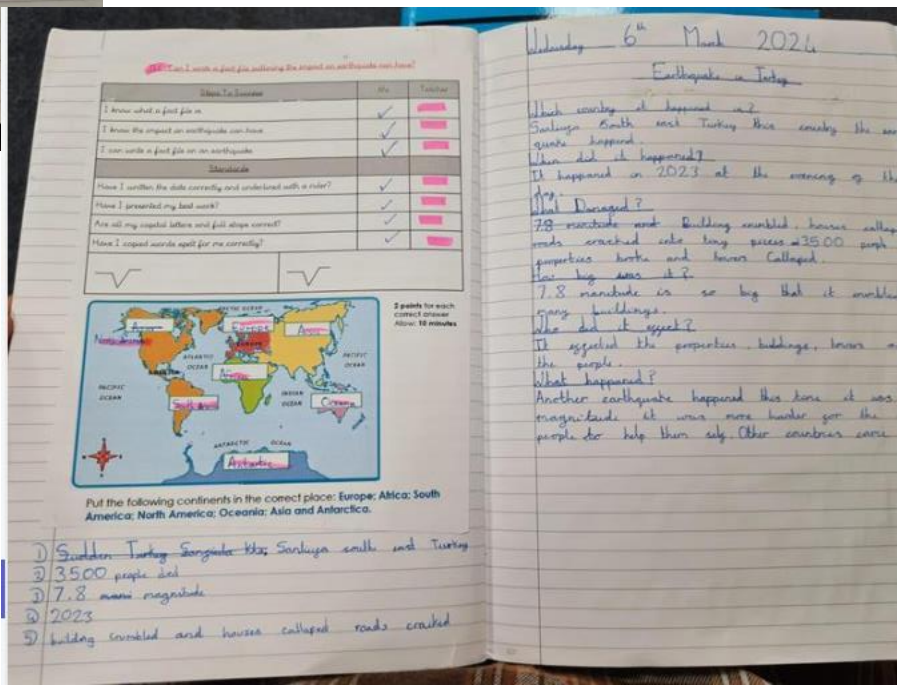 Can I write a fact file outlining the impact an earthquake can have?
Steps To Success Me Teacher
I know what a fact file is
I know the impact an earthquake can have
I can write a fact file on an earthquake
Standards
Have I written the date correctly and underlined with a ruler?
Have I presented my best work?
Are all my capital letters and full stops correct?
Have I copied words spelt for me correctly?
ARCTIC OCEAN
Europe
Asia
North America
EUROPE
ATLANTIC OCEAN
PACIFIC OCEAN
Africa
PACIFIC OCEAN
INDIAN OCEAN
South America
Oceania
ANTARCTIC OCEAN
Antarctic
2 points for each
correct answer
Allow: 10 minutes
Put the following continents in the correct place: Europe; Africa; South
America; North America; Oceania; Asia and Antarctica.
1) Turkey south east Turkey
2) 3500 people died
3) 7.8 magnitude
4) 2023
5) building crumbled and houses collaped roads cracked
Wednesday 6th March 2024
Earthquake in Turkey
Which country it happened in?
south east Turkey this country the ear
quake happend.
When did it happened?
It happened on 2023 at the evening of the
day.
What Damaged?
7.8 Building crumbled, houses collap
roads cracked into tiny pieces 3500 peopl
properties broke and towers Collaped.
How big was it?
7.8 manitude is so big that it crumbled
many buildings.
Who did it effect?
It effected the properties, buldings, towers
the people.
What happened?
Another earthquake happened this time it was
magnitude it was more harder for the
people to help them self. Other countries came